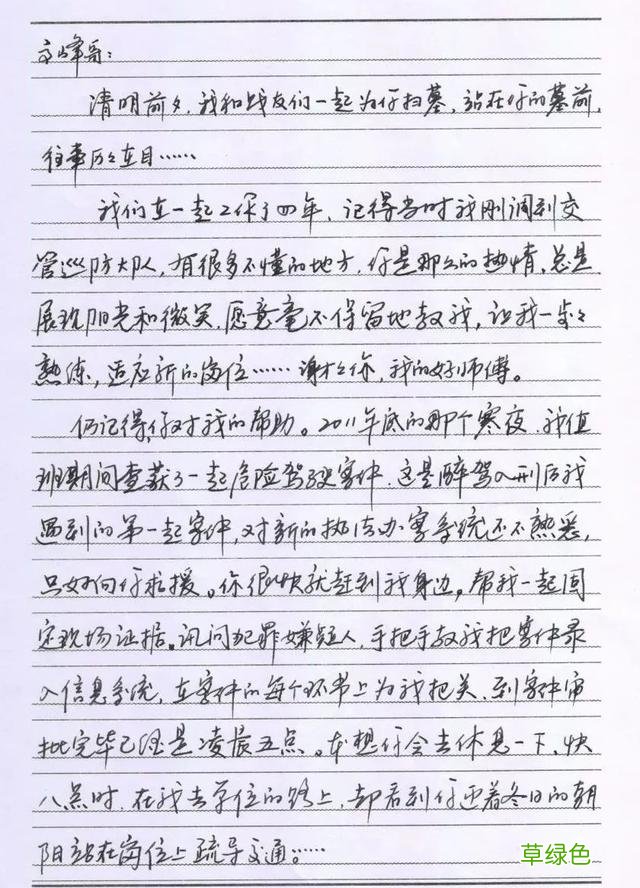 高峰哥：
清明前夕，我和战友们一起为你扫墓，站在你的墓前，
往事历历在目……
我们在一起工作了四年，记得当时我刚调到交
管巡防大队，有很多不懂的地方，你是那么的热情，总是
展现阳光和微笑，愿意毫不保留地教我，让我一步々
熟练，适应新的岗位……谢谢你，我的好师傅。
仍记得，你对我的帮助。2011年底的那个寒夜，我值
班期间查获了一起危险驾驶案件，这是醉驾入刑后我
遇到的第一起案件，对新的执法办案系统还不熟悉，
只好向你求援。你很快就赶到我身边，帮我一起固
定现场证据。讯问犯罪嫌疑人，手把手教我把案件录
入信息系统，在案件的每个环节上为我把关，到案件审
批完毕已经是凌晨五点。本想你会去休息一下，快
八点时，在我去单位的路上，却看到你迎着冬日的朝
阳站在岗位上疏导交通。……
草绿色